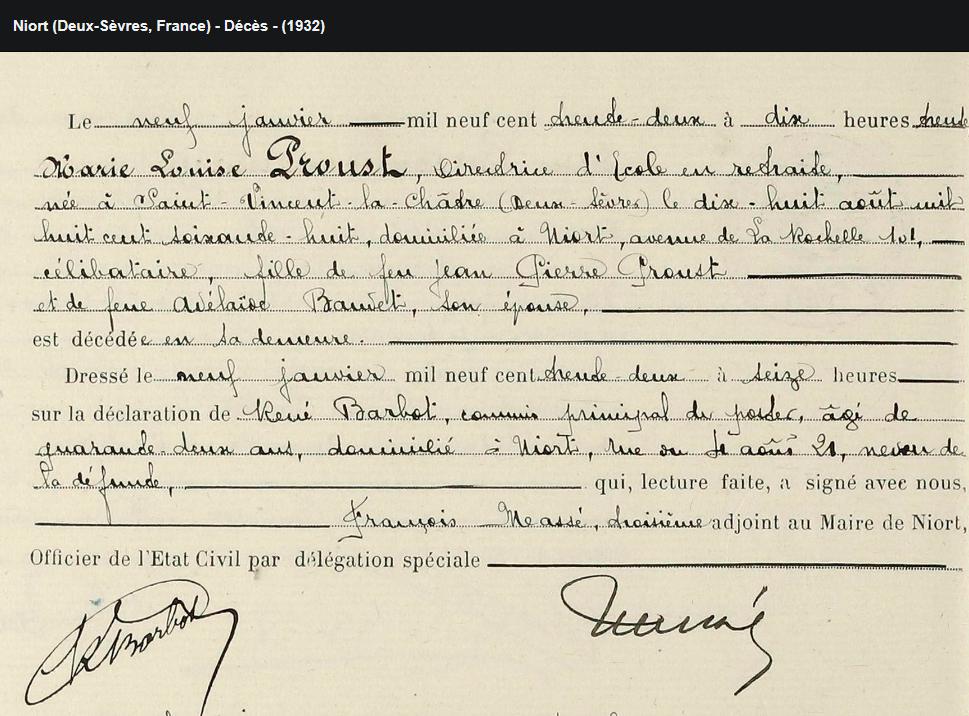 Niort (Deux-Sèvres, France) - Décès - (1932)
Le neuf janvier mil neuf cent trente-deux à dix heures trente
Marie Louise Proust, Directrice d'Ecole en retraite,
née à Saint-Vincent-la-Châtre (Deux-Sèvres) le dix-huit août mil
huit cent soixante-huit, domiciliée à Niort, avenue de La Rochelle 101,
célibataire, fille de feu Jean Pierre Proust
et de feue Adélaïde Bauvet, son épouse,
est décédée en sa demeure.
Dressé le neuf janvier mil neuf cent trente-deux à seize heures
sur la déclaration de René Barbot, commis principal des postes, âgé de
quarante-deux ans, domicilié à Niort, rue du 4 août 21, neveu de
la défunte, qui, lecture faite, a signé avec nous,
François Massé, troisième adjoint au Maire de Niort,
Officier de l'Etat Civil par délégation spéciale
RBarbot Massé